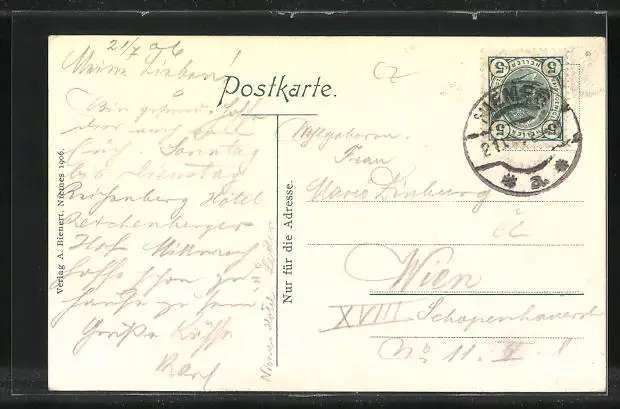 21/7 06
Meine Lieben!
Postkarte.
Bin gesund, hoffe
dies auch von
Euch. Sonntag
bis Dienstag
Reichenberg Hotel
Reichenberger
Hof. Mittwoch
hoffe schon zu
Hause zu sein
Grüße Küsse
Karl
Niemes Hotel
Verlag A. Bienert, Niemes 1906.
Nur für die Adresse.
CZ
5 HELLER 5
NIEMES
21
* a *
Wohlgeboren
Frau
Marie
Wien
XVIII Schopenhauerstr
No 11.